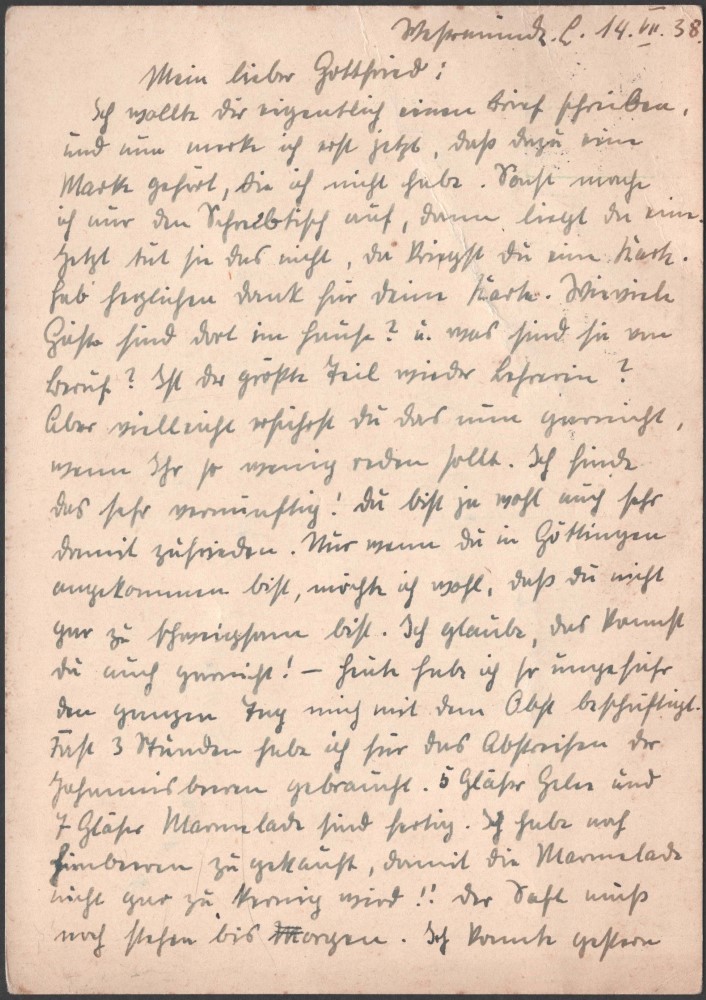 Wesermünde-L. 14. VII. 38.
Mein lieber Gottfried!
Ich wollte dir eigentlich einen Brief schreiben,
und nun merke ich erst jetzt, daß dazu eine
Marke gehört, die ich nicht habe. Sonst mache
ich nur den Schreibtisch auf, dann liegt da eine.
Jetzt tut sie das nicht, da kriegst du eine Karte.
Hab' herzlichen Dank für deine Karte. Wieviele
Gäste sind dort im Hause? u. was sind sie von
Beruf? Ist der größte Teil wieder Lehrerin?
Aber vielleicht erfährst du das nun garnicht,
wenn Ihr so wenig reden sollt. Ich finde
das sehr vernünftig! Du bist ja wohl auch sehr
damit zufrieden. Nur wenn du in Göttingen
angekommen bist, möchte ich wohl, daß du nicht
gar zu schweigsam bist. Ich glaube, das kannst
du auch garnicht! – Heute habe ich so ungefähr
den ganzen Tag mich mit dem Obst beschäftigt.
Fast 3 Stunden habe ich für das Abstreifen der
Johannisbeeren gebraucht. 5 Gläser Gelee und
7 Gläser Marmelade sind fertig. Ich habe noch
Himbeeren zu gekauft, damit die Marmelade
nicht gar zu kernig wird!! Der Saft muß
noch stehen bis Morgen. Ich konnte gestern